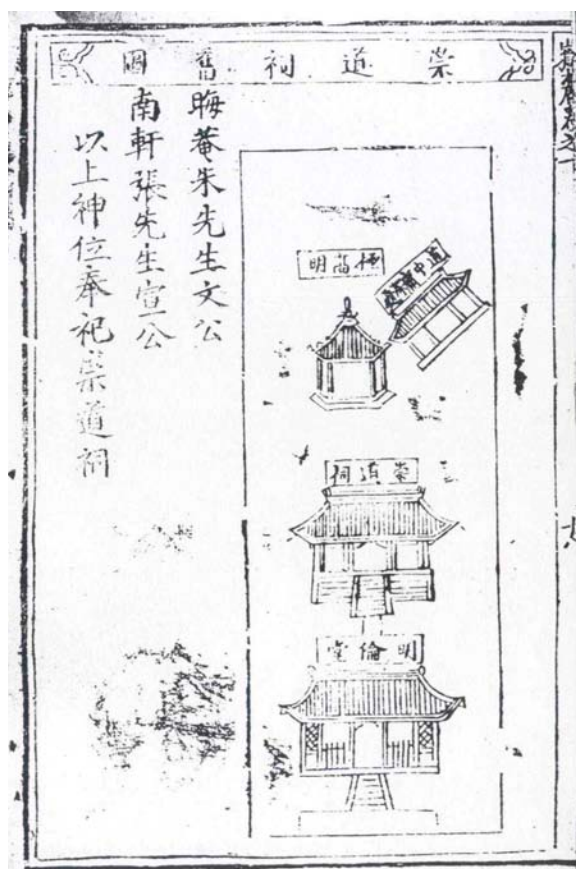 崇道祠舊圖
極高明
道中庸
崇道祠
明倫堂
晦菴朱先生文公
南軒張先生宣公
以上神位奉祀崇道祠